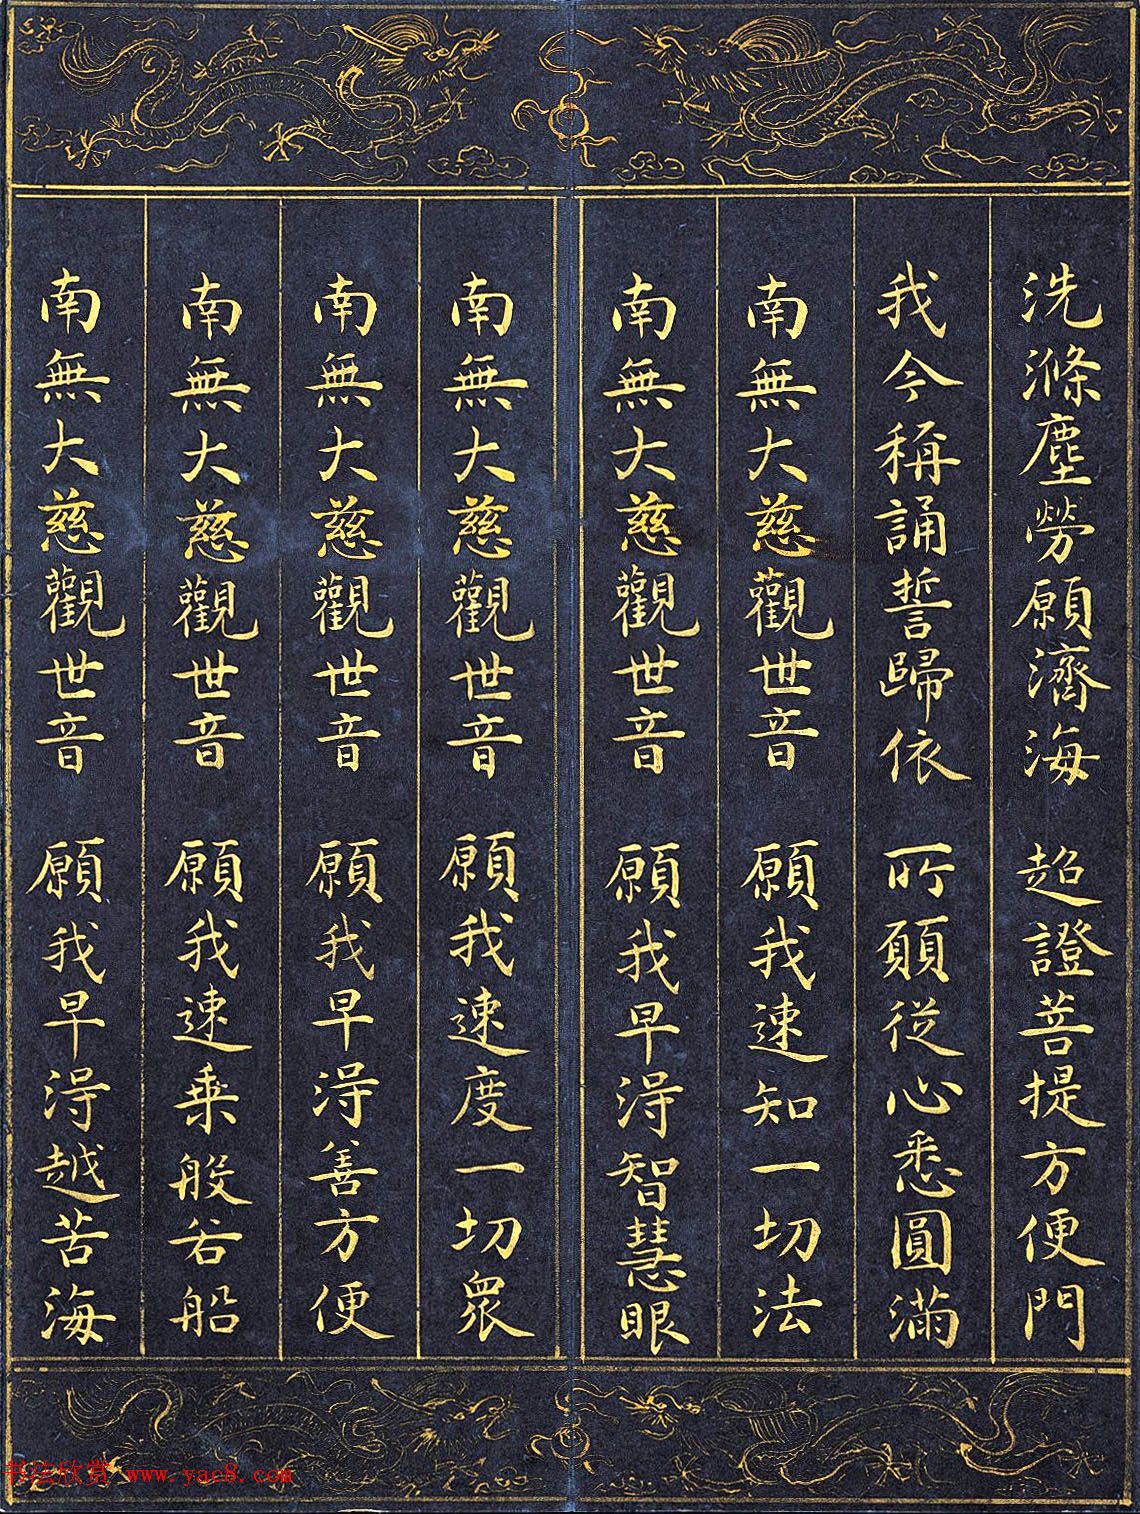 洗滌塵勞願濟海 超證菩提方便門
我今稱誦誓歸依 所願從心悉圓滿
南無大慈觀世音 願我速知一切法
南無大慈觀世音 願我早得智慧眼
南無大慈觀世音 願我速度一切眾
南無大慈觀世音 願我早得善方便
南無大慈觀世音 願我速乘般若船
南無大慈觀世音 願我早得越苦海
书法欣赏 www.yac8.com